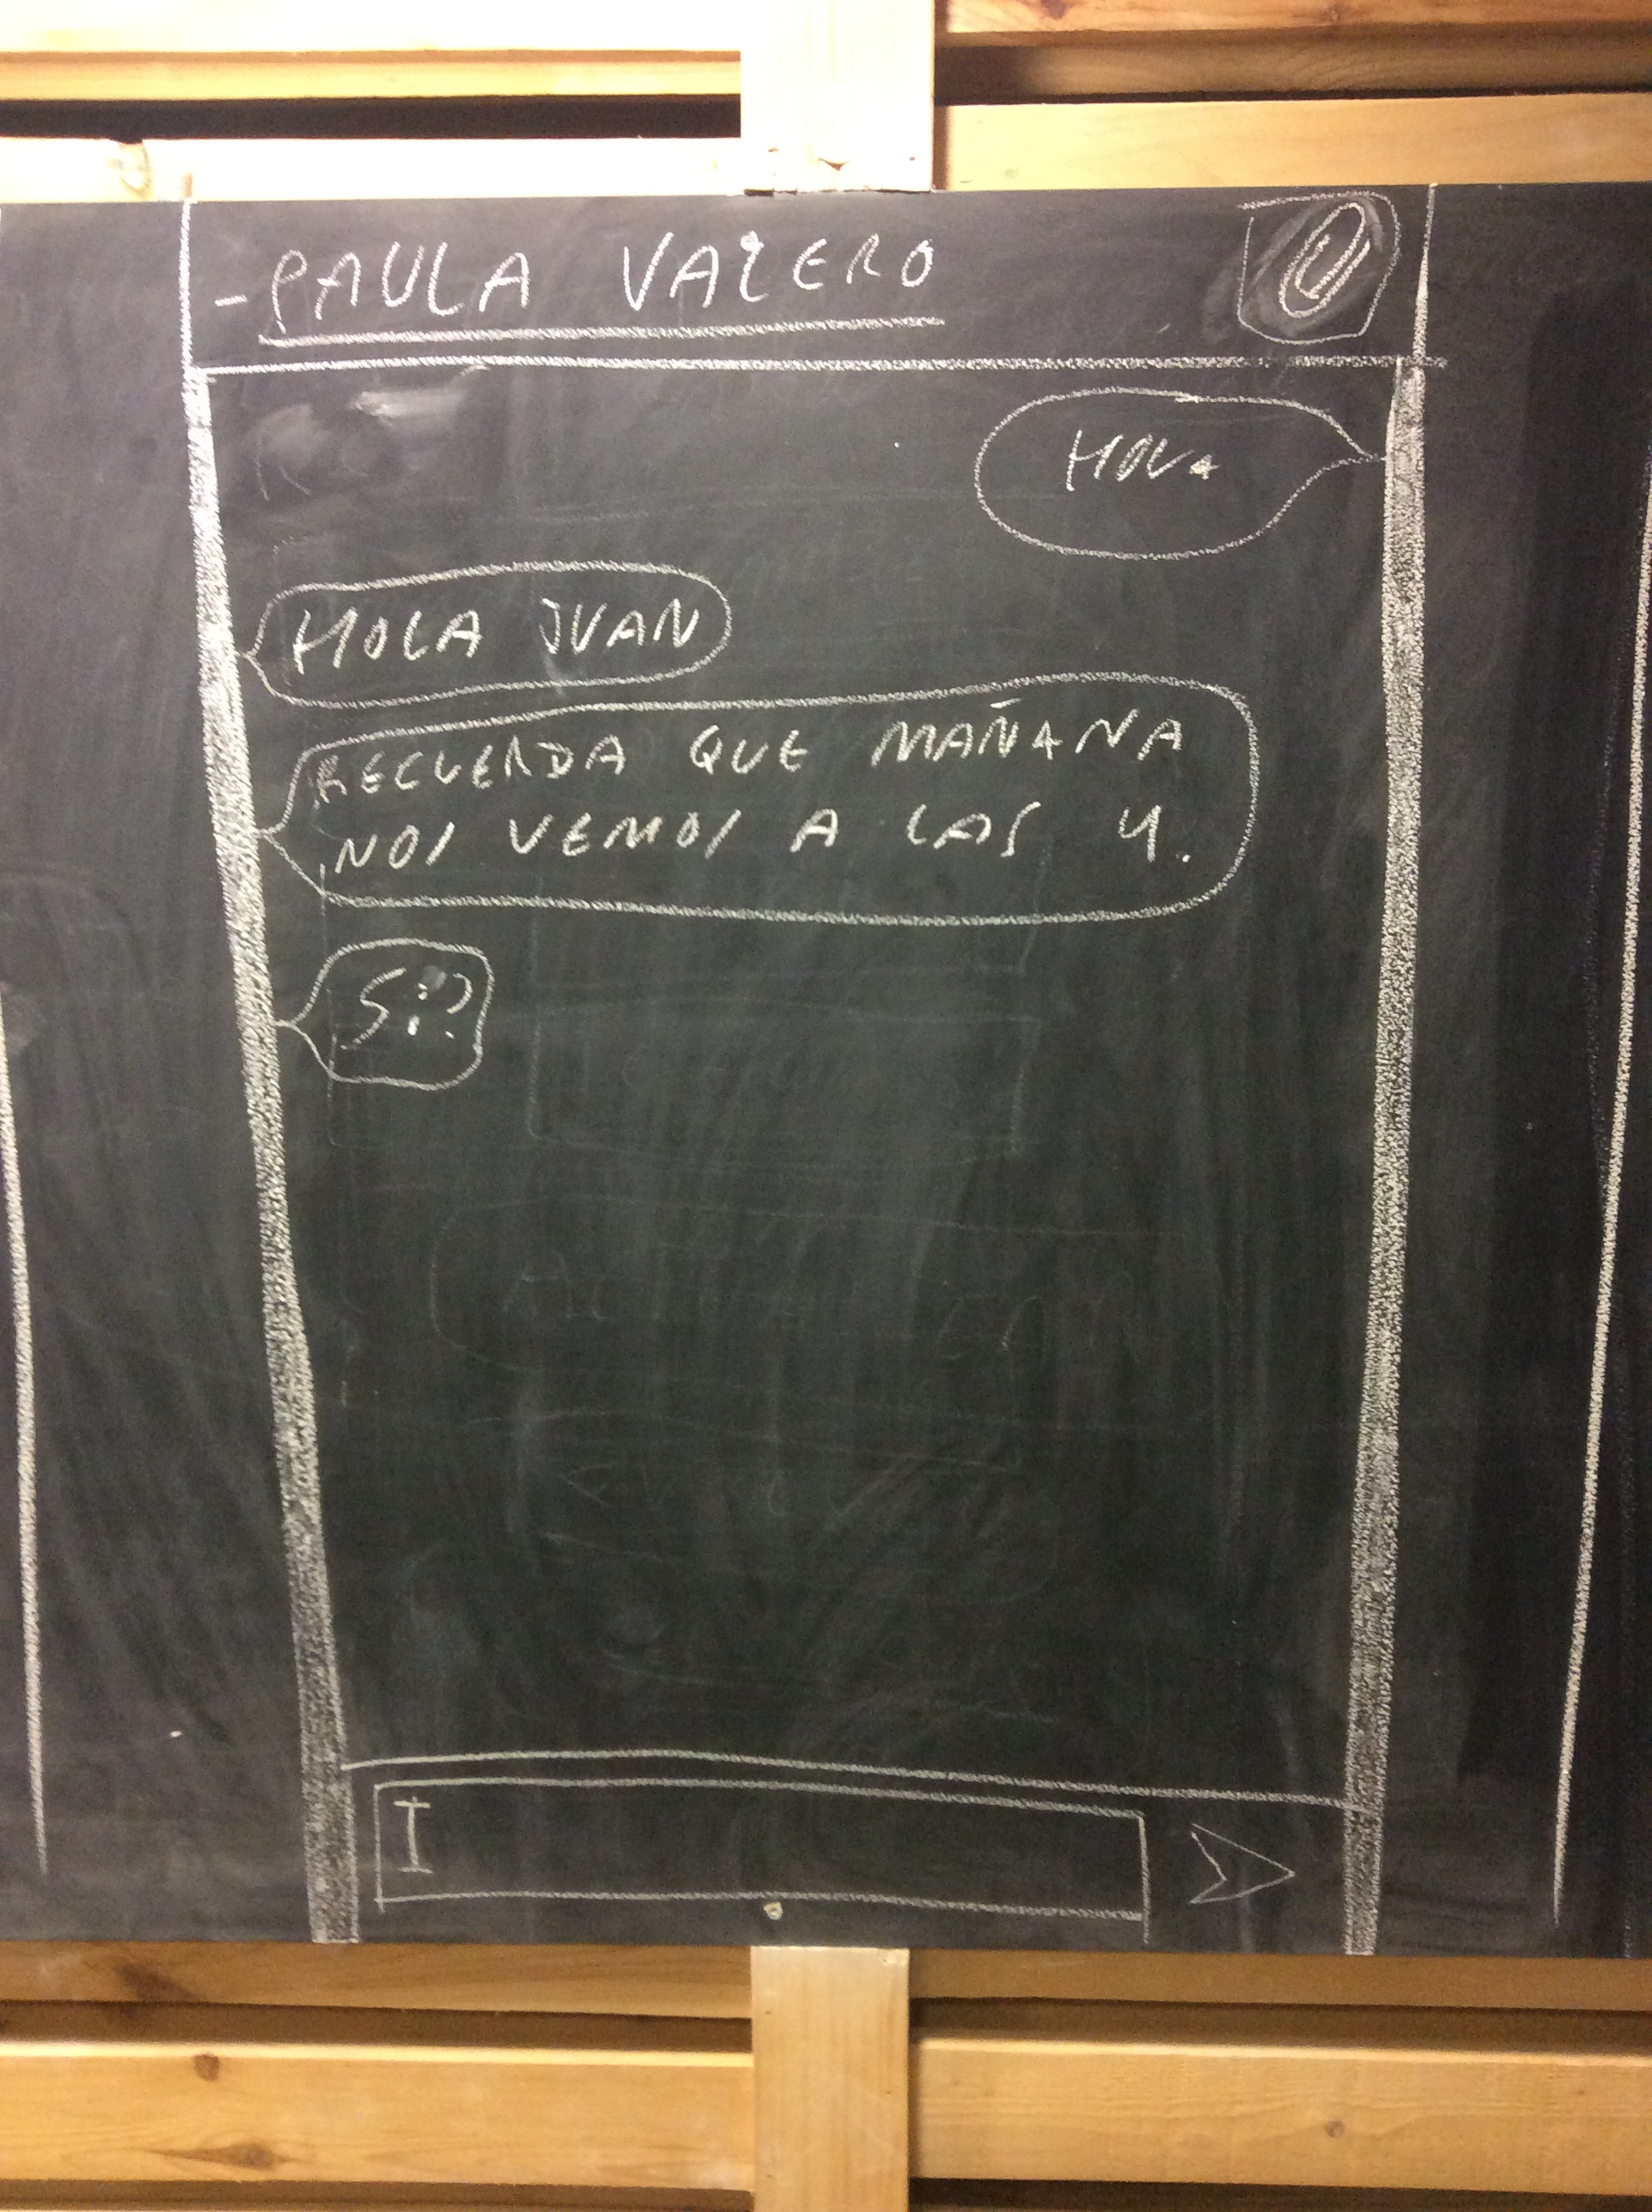 -PAULA VALERO
HOLA
HOLA JUAN
RECUERDA QUE MAÑANA
NOS VEMOS A LAS 4.
Si?